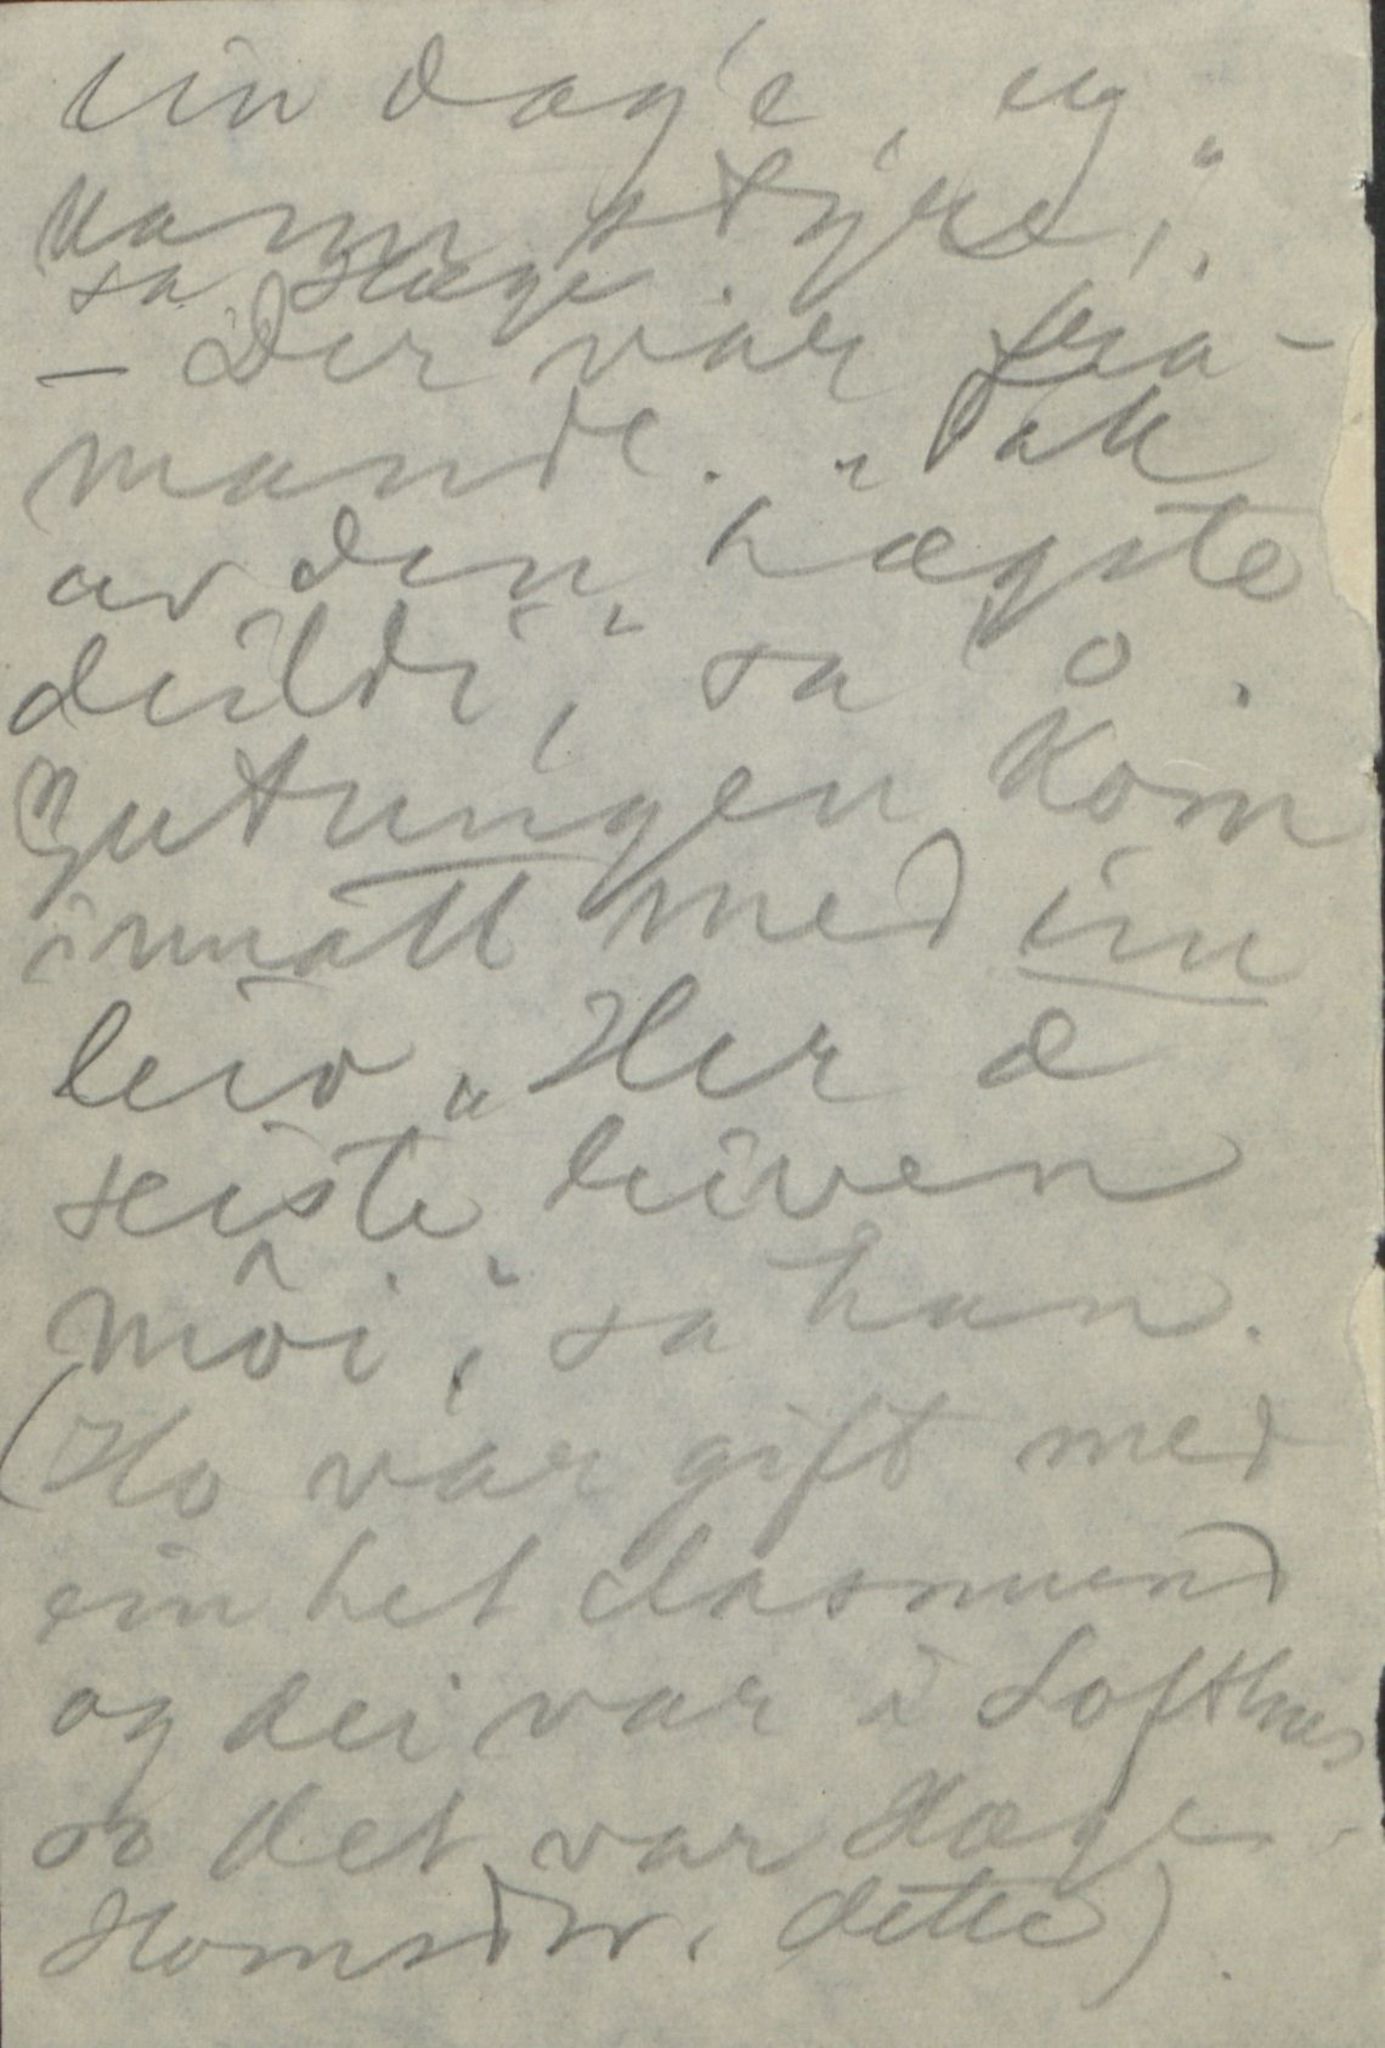 ein dag'e, eg
kann styre,"
sa Hæge.
– Der var fra-
mande. "Tak
av den, hægste
deildi," sa o.
Gutungen kom
innatt med ein
leiv. "Her æ
seiste leiven
môi," sa han.
(Ho var gift med
ein het Aasmund
og dei var i Lofthus
so det var Hæge
Homsdtr. dette).